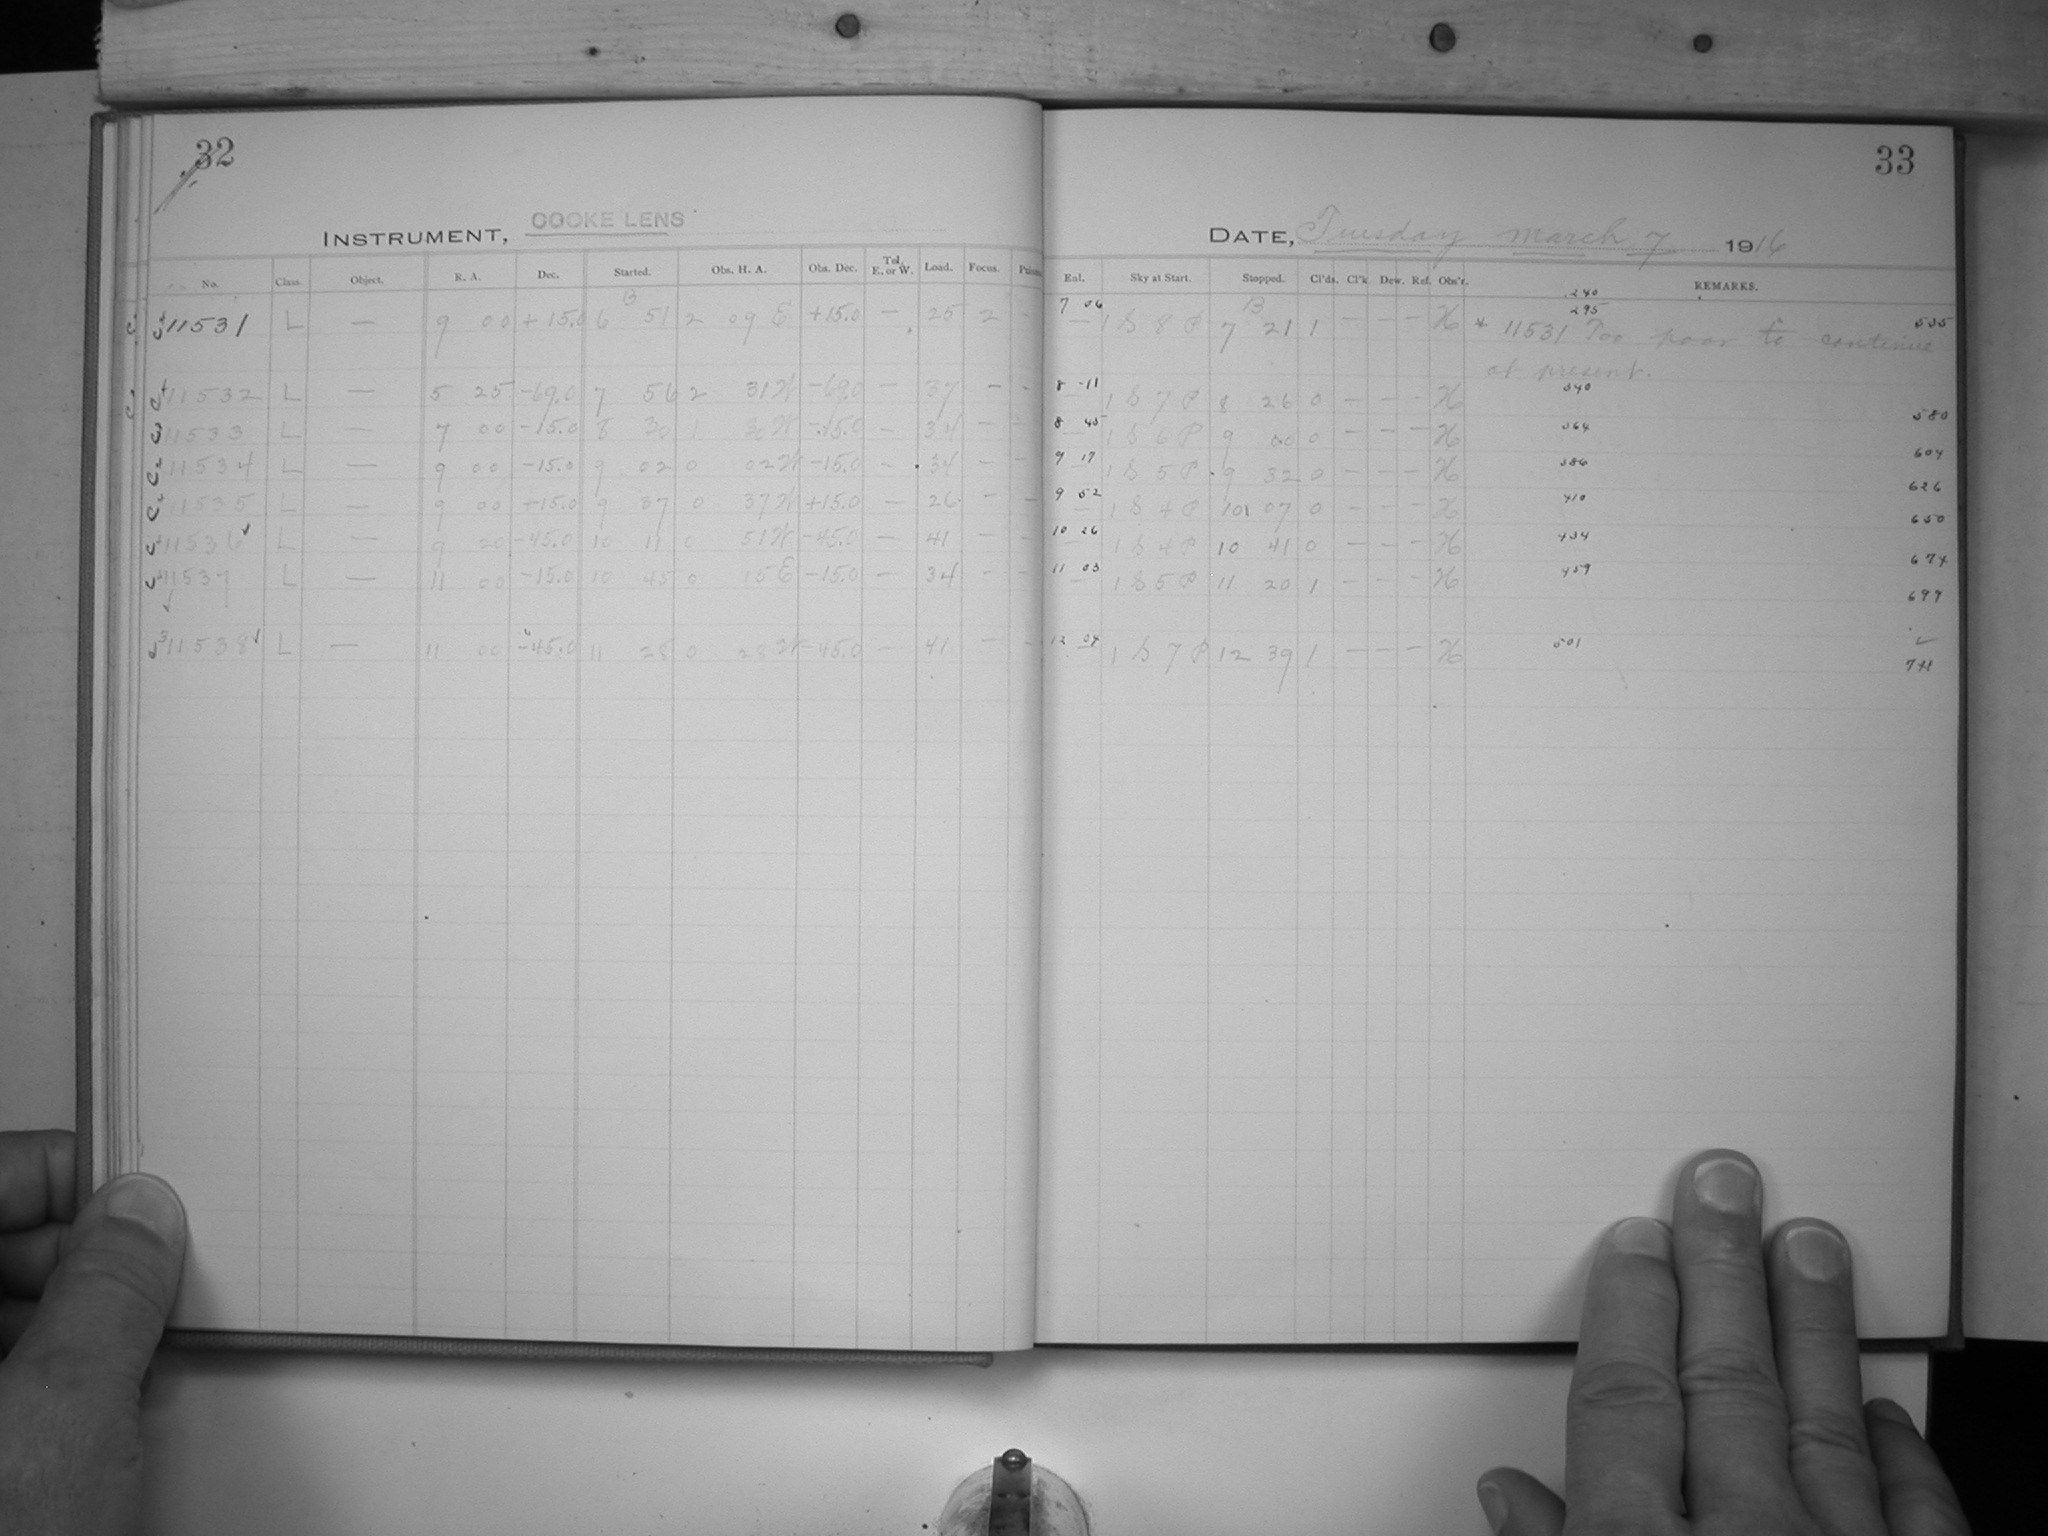 32
33
INSTRUMENT, COOKE LENS
DATE, Tuesday March 7 1916
No. Class. Object. R. A. Dec. Started. Obs. H. A. Obs. Dec. Tel. E. or W. Load. Focus. Exl. Sky at Start. Stopped. Cl'ds. Cl'k Dew. Ref. Obs'r. REMARKS.
B 7 06 B .240 295
11531 L — 9 00 +15.0 6 51 2 09 E +15.0 — 25 2 - — 1 S 8 P 7 21 1 — — — H * 11531 Too poor to continue 535
at present.
11532 L — 5 25 -69.0 7 56 2 31 W -69.0 — 37 — - 8 -11 1 S 7 P 8 26 0 — — — H 340 580
11533 L — 7 00 -15.0 8 30 1 30 W -15.0 — 34 — - 8 45 1 S 6 P 9 00 0 — — — H 364 604
11534 L — 9 00 -15.0 9 02 0 02 W -15.0 — 34 — - 9 17 1 S 5 P 9 32 0 — — — H 386 626
11535 L — 9 00 +15.0 9 37 0 37 W +15.0 — 26 — - 9 52 1 S 4 P 10 07 0 — — — H 410 650
11536 L — 9 20 -45.0 10 11 0 51 W -45.0 — 41 — - 10 26 1 S 4 P 10 41 0 — — — H 434 674
11537 L — 11 00 -15.0 10 45 0 15 E -15.0 — 34 — - 11 03 1 S 5 P 11 20 1 — — — H 459 699
11538 L — 11 00 -45.0 11 28 0 28 W -45.0 — 41 — - 12 04 1 S 7 P 12 39 1 — — — H 501 741